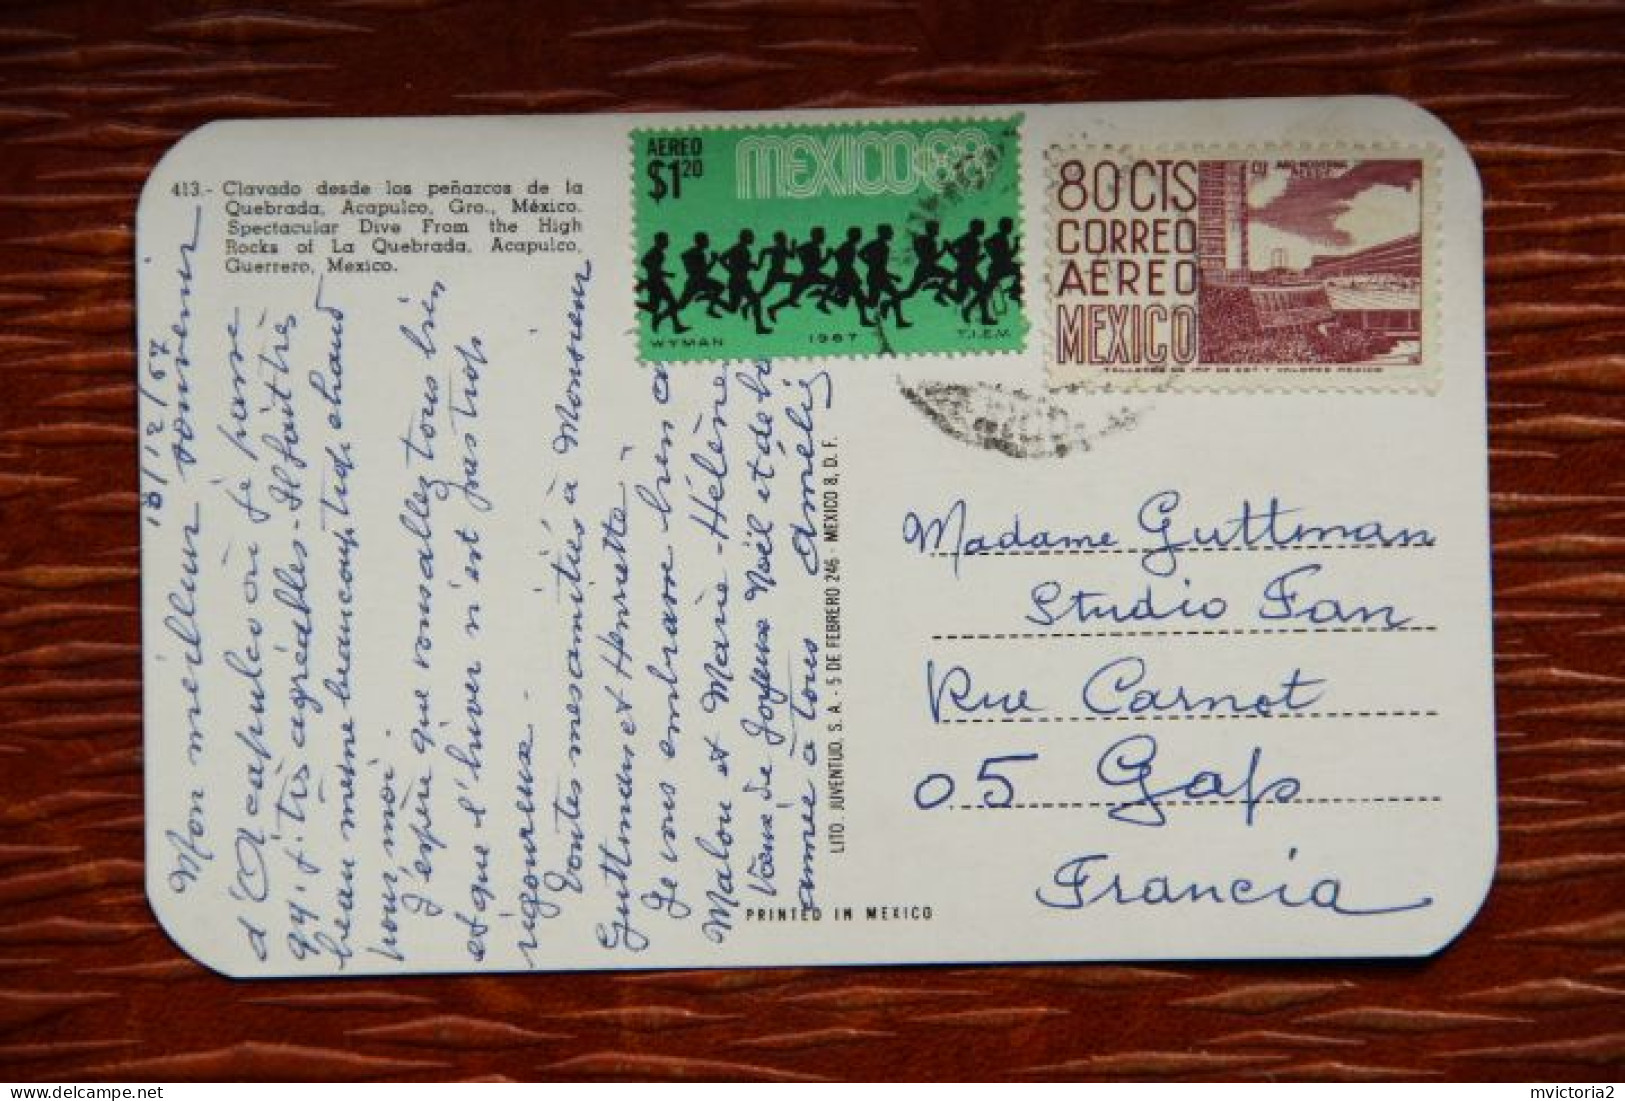 413.- Clavado desde los peñazcos de la
Quebrada, Acapulco, Gro., México.
Spectacular Dive From the High
Rocks of La Quebrada, Acapulco,
Guerrero, Mexico.
18/12/67
Mon meilleur souvenir
d'Acapulco où je passe
qq. j. très agréables - Il fait très
beau même beaucoup trop chaud
pour moi.
J'espère que vous allez tous bien
et que l'hiver n'est pas trop
rigoureux.
Toutes mes amitiés à Monsieur
Guttman et Henriette.
Je vous embrasse bien a
Malou et Marie-Hélène
Vœux de Joyeux Noël et de bo
année à tous Amélie
LITO. JUVENTUD. S. A. - 5 DE FEBRERO 246 - MEXICO 8, D. F.
PRINTED IN MEXICO
AEREO
$1.20
MEXICO 68
WYMAN 1967 T.I.E.V.
80 CTS
CORREO
AEREO
MEXICO
ARQ MODERNA
MEXICO
TALLERES DE IMP DE EST Y VALORES MEXICO
Madame Guttman
Studio Fan
Rue Carnot
05 Gap
Francia
mvictoria2